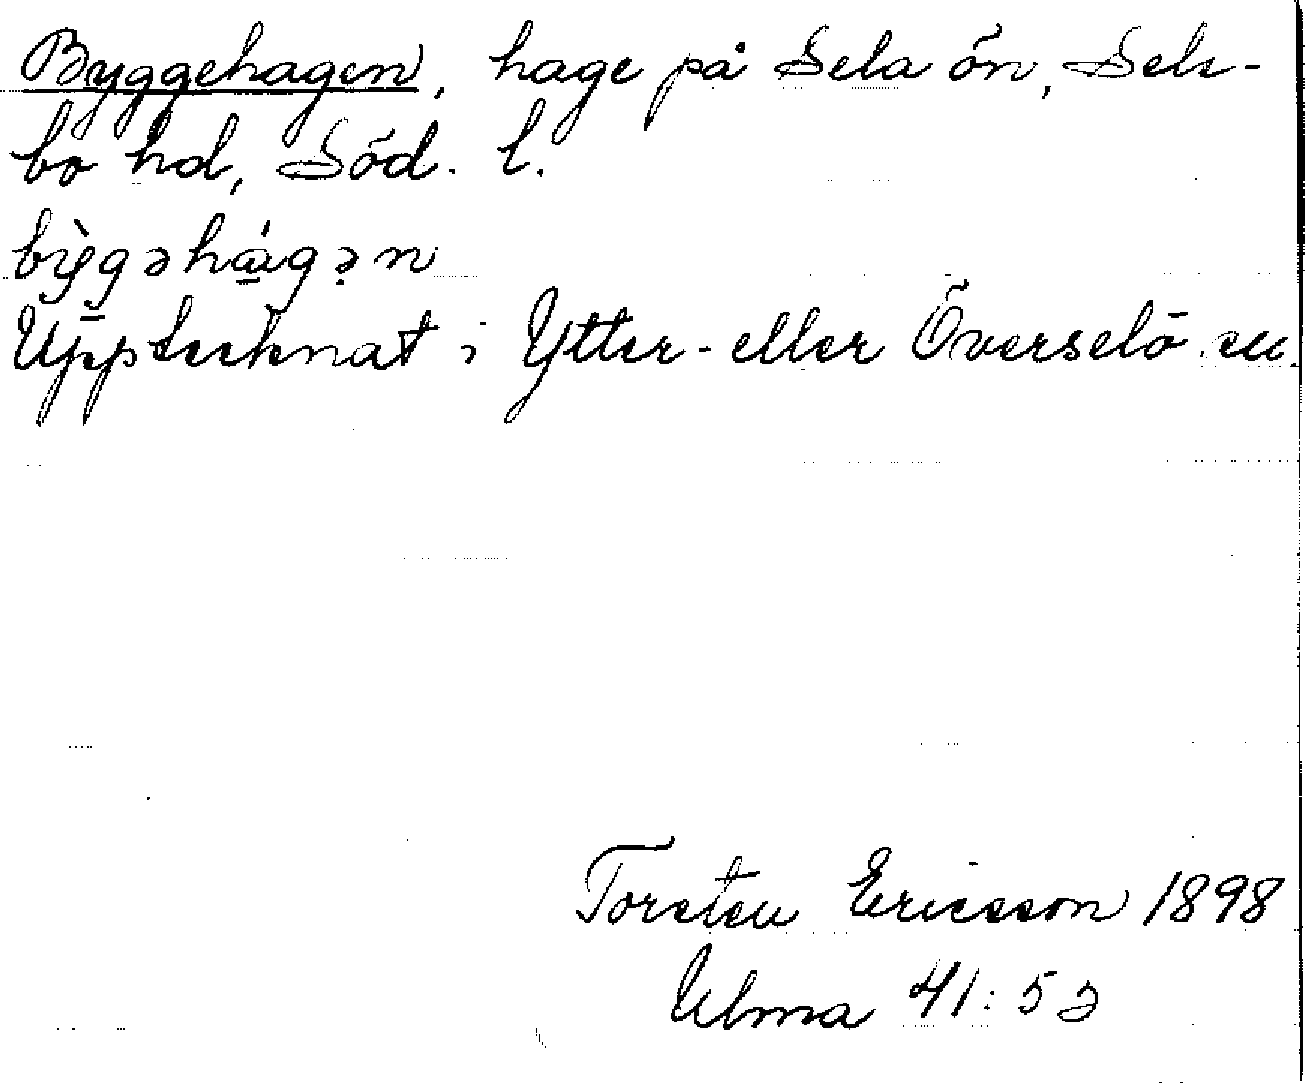 Byggehagen, hage på Sela ön, Sele-
bo hd, Söd. l.
bỳgəhágən
Upptecknat i Ytter- eller Överselö sn.
Torsten Ericsson 1898
Ulma 41:52